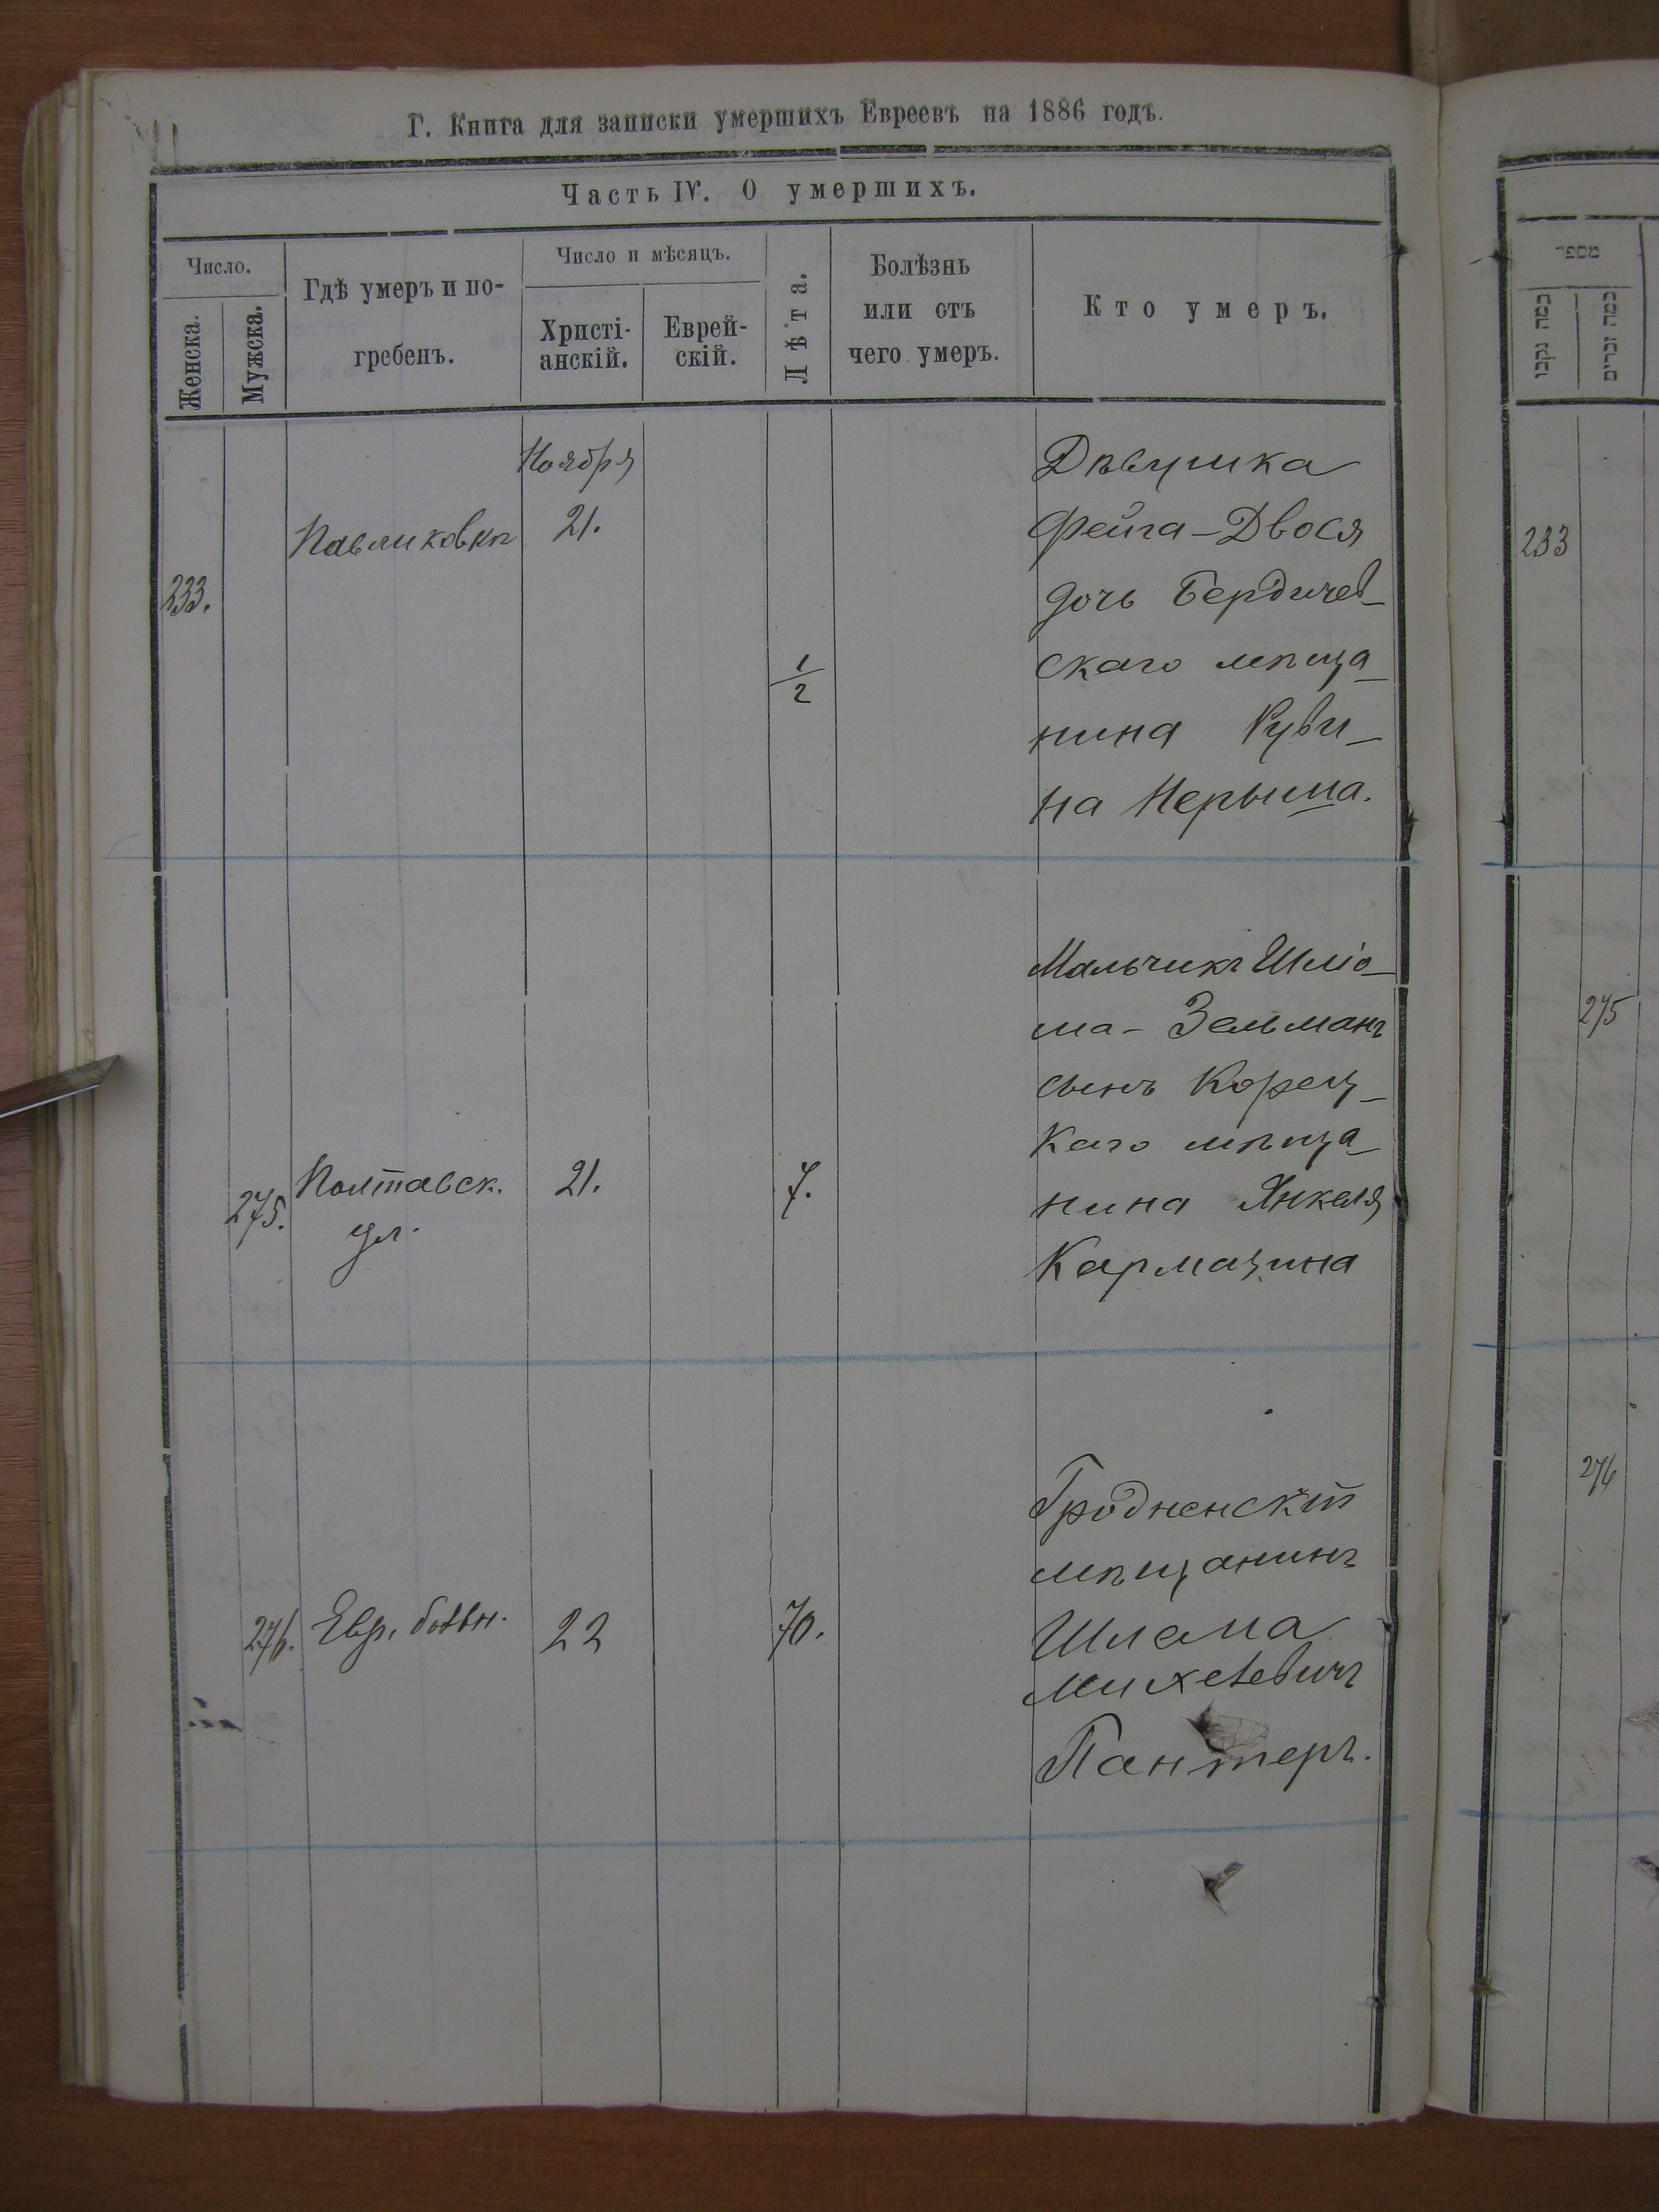 Г. Книга для записки умершихъ Евреевъ на 1886 годъ.
Часть IV. О умершихъ.
Число.
Женска.
Мужска.
Гдѣ умеръ и по-
гребенъ.
Число и мѣсяцъ.
Христі-
анскій.
Еврей-
скій.
Лѣта.
Болѣзнь
или отъ
чего умеръ.
Кто умеръ.
Ноября
233.
Павликовкѣ
21.
1/2
Дѣвушка
Фейга-Двося
дочь Бердичев-
скаго мѣща-
нина Руви-
на Нерыша.
275.
Полтавск.
ул.
21.
7.
Мальчикъ Шліо-
ма-Зельманъ
сынъ Корец-
каго мѣща-
нина Янкеля
Кармазина
276.
Евр. больн.
22
70.
Гродненскій
мѣщанинъ
Шлема
Михелевичъ
Пантеръ.
מספר
כמה נקבות
כמה זכרים
233
275
276